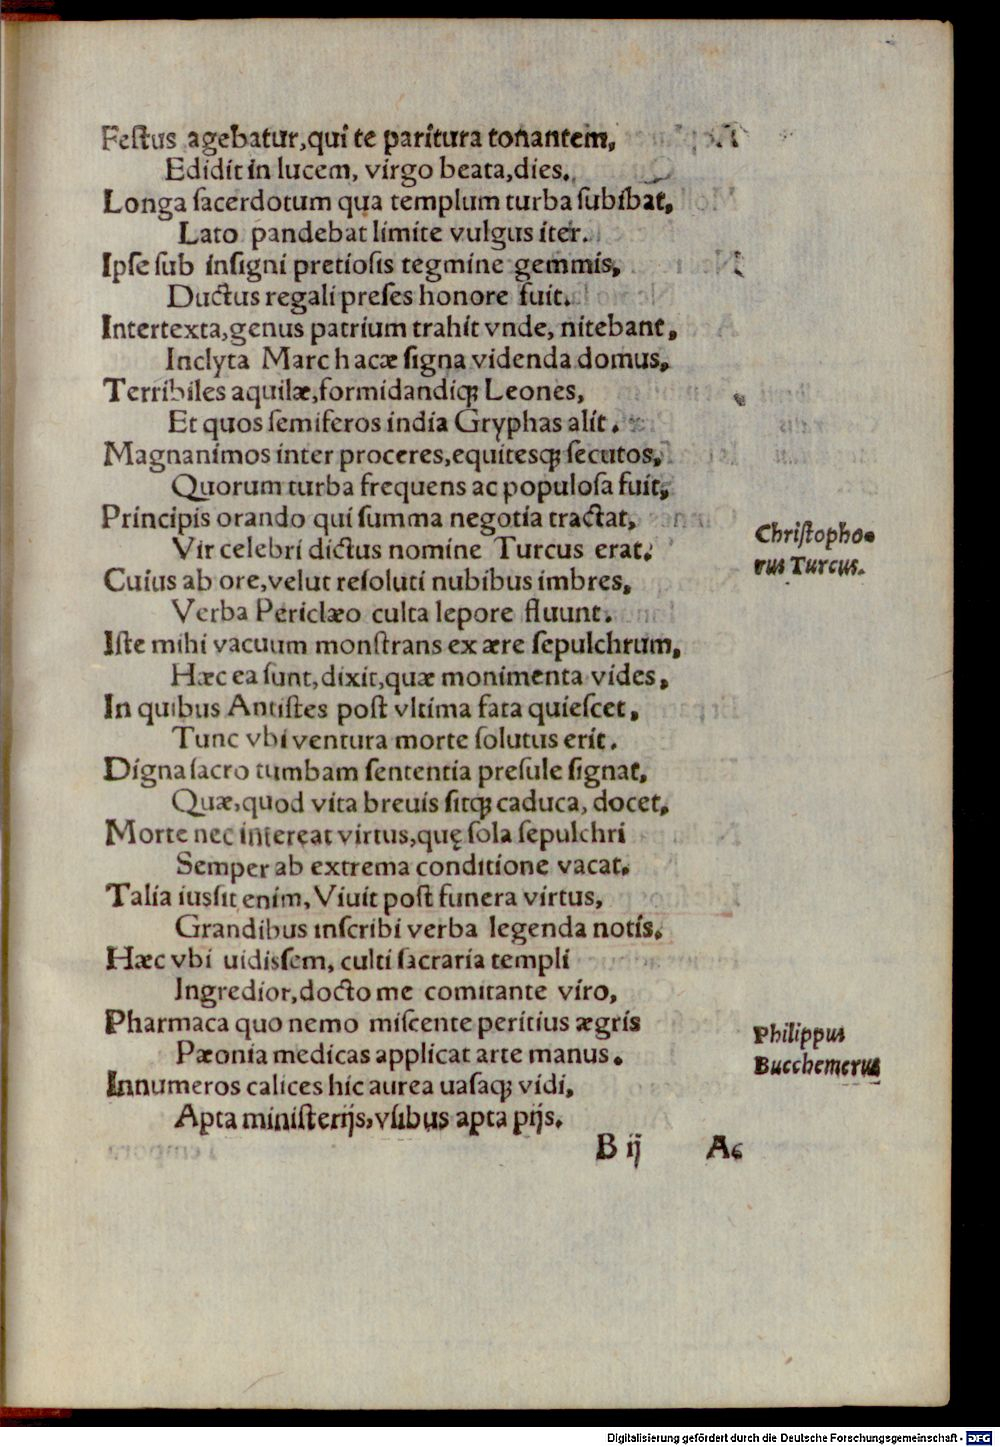 Feſtus agebatur, qui te paritura tonantem,
Edidit in lucem, virgo beata, dies.
Longa ſacerdotum qua templum turba ſubibat,
Lato pandebat limite vulgus iter.
Ipſe ſub inſigni pretioſis tegmine gemmis,
Ductus regali preſes honore fuit.
Intertexta, genus patrium trahit vnde, nitebant,
Inclyta Marchacæ ſigna videnda domus,
Terribiles aquilæ, formidandiqꝫ Leones,
Et quos ſemiferos india Gryphas alit.
Magnanimos inter proceres, equitesqꝫ ſecutos,
Quorum turba frequens ac populoſa fuit,
Principis orando qui ſumma negotia tractat,
Vir celebri dictus nomine Turcus erat.
Chriſtopho-
rus Turcus.
Cuius ab ore, velut reſoluti nubibus imbres,
Verba Periclæo culta lepore fluunt.
Iſte mihi vacuum monſtrans ex ære ſepulchrum,
Hæc ea ſunt, dixit, quæ monimenta vides,
In quibus Antiſtes poſt vltima fata quieſcet,
Tunc vbi ventura morte ſolutus erit.
Digna ſacro tumbam ſententia preſule ſignat,
Quæ, quod vita breuis ſitqꝫ caduca, docet,
Morte nec intereat virtus, quę ſola ſepulchri
Semper ab extrema conditione vacat.
Talia iusſit enim, Viuit poſt funera virtus,
Grandibus inſcribi verba legenda notis.
Hæc vbi uidisſem, culti ſacraria templi
Ingredior, docto me comitante viro,
Pharmaca quo nemo miſcente peritius ægris
Pæonia medicas applicat arte manus.
Philippus
Bucchemerus
Innumeros calices hic aurea uaſaqꝫ vidi,
Apta miniſterijs, vſibus apta pijs.
B ij Ac
Digitalisierung gefördert durch die Deutsche Forschungsgemeinschaft - DFG